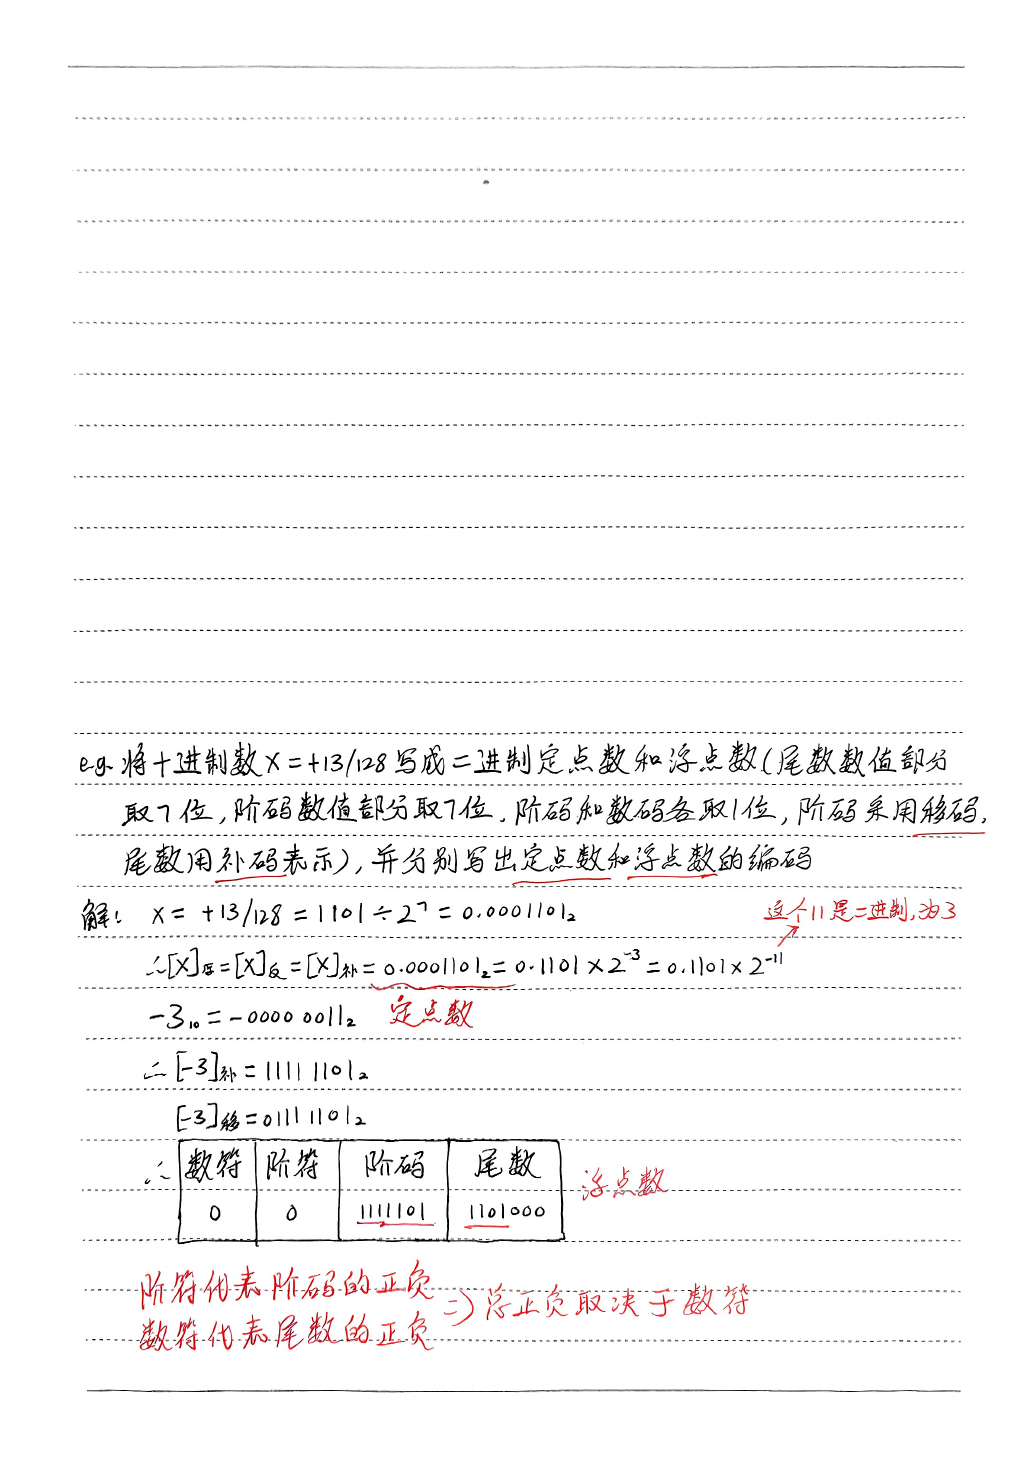 e.g. 将十进制数X=+13/128写成二进制定点数和浮点数(尾数数值部分
取7位,阶码数值部分取7位,阶码和数码各取1位,阶码采用移码,
尾数用补码表示),并分别写出定点数和浮点数的编码
解: X= +13/128 = 1101 ÷ 2⁷ = 0.0001101₂
这个11是二进制,为3
∴[X]原=[X]反=[X]补= 0.0001101₂= 0.1101 × 2⁻³ = 0.1101 × 2⁻¹¹
-3₁₀ = - 0000 0011₂ 定点数
∴ [-3]补 = 1111 1101₂
[-3]移 = 0111 1101₂
∴ 数符 阶符 阶码 尾数
浮点数
0 0 1111101 1101000
阶符代表阶码的正负
=> 总正负取决于数符
数符代表尾数的正负